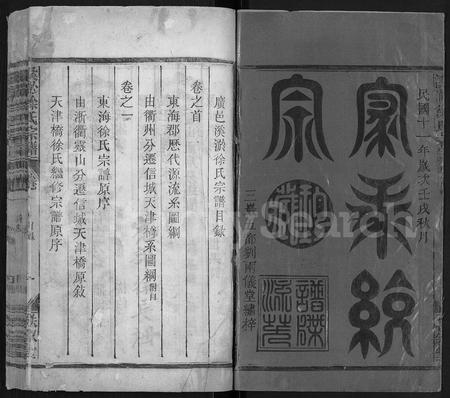 民國十一年歲次壬戌秋月
家乘統
宗
譜牒
流芳
廣邑溪淤徐氏宗譜目錄
卷之首
東海郡歷代源流系圖綱
由衢州分遷信城天津橋系圖綱附目
卷之一
東海徐氏宗譜原序
由浙衢靈山分遷信城天津橋原敘
天津橋徐氏繼修宗譜原序
FamilySearch